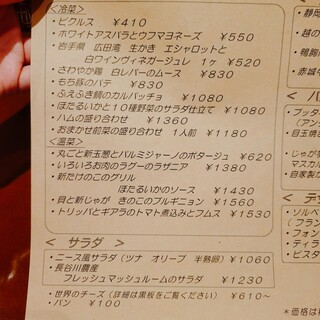 <冷菜>
・ピクルス ¥410
・ホワイトアスパラとウフマヨネーズ ¥550
・岩手県 広田湾 生かき エシャロットと
白ワインヴィネガージュレ 1ヶ ¥520
・さわやか鶏 白レバーのムース ¥830
・もち豚のパテ ¥830
・ふえふき鯛のカルパッチョ ¥1080
・ほたるいかと10種野菜のサラダ仕立て ¥1080
・ハムの盛り合わせ ¥1360
・おまかせ前菜の盛り合わせ 1人前 ¥1180
<温菜>
・丸ごと新玉葱とパルミジャーノのポタージュ ¥620
・いろいろお肉のラグーのラザニア ¥1380
・新たけのこのグリル
ほたるいかのソース ¥1430
・貝と新じゃが きのこのブルギニョン ¥1560
・トリッパとギアラのトマト煮込みとフムス ¥1530
< サラダ >
・ニース風サラダ(ツナ オリーブ 半熟卵) ¥1060
・長谷川農産
フレッシュマッシュルームのサラダ ¥1230
・世界のチーズ(詳細は黒板をご覧ください) ¥610~
・パン ¥100
・静岡
・越の
・鴨胸
・赤城
< パ
・ブッタ
(アン
・目玉焼
・じゃが
・マスカ
・自家製
< デ
・ソルベ
(フラン
・フォン
・ティラ
・ピスタ
*価格は